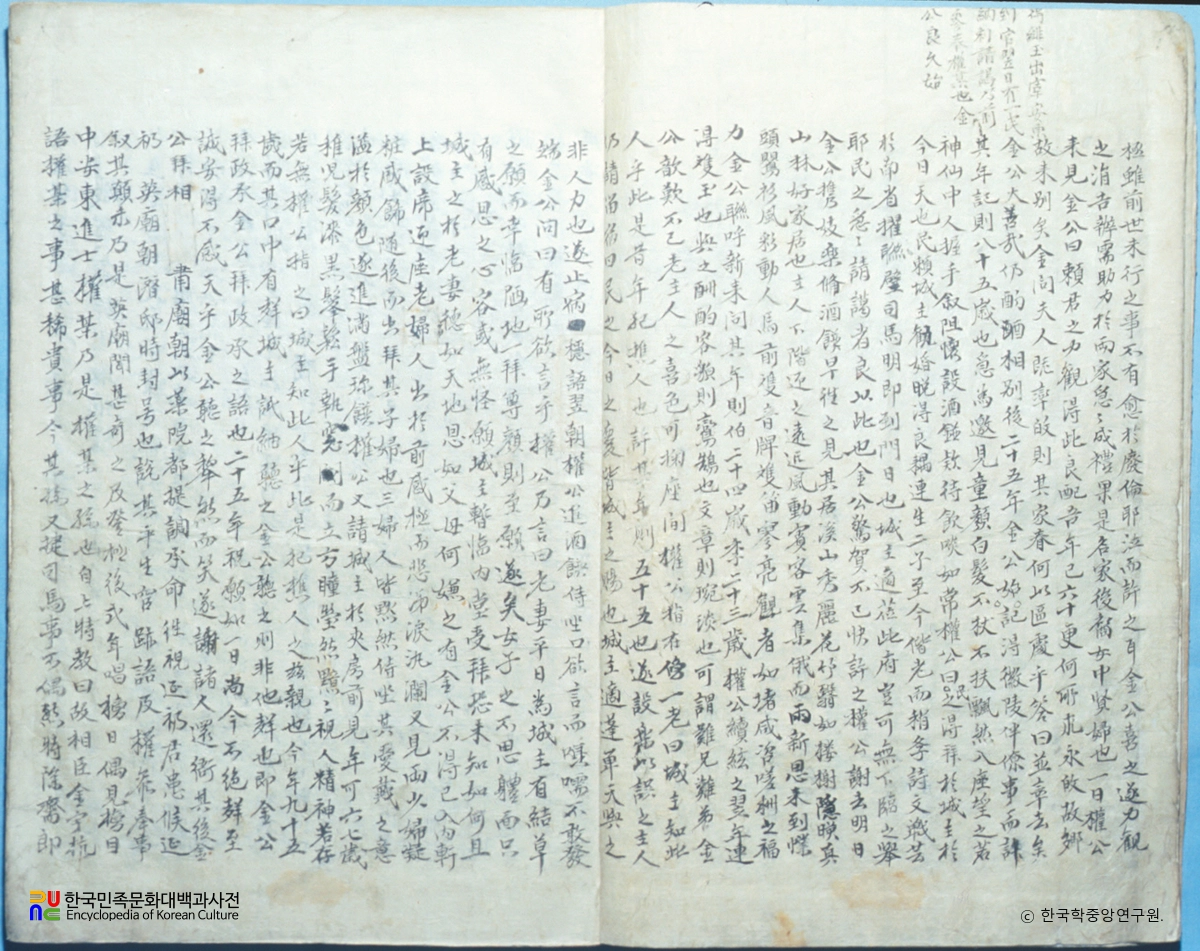 到官翌日有一民
公良久始
極雖前世未行之事不有愈於廢倫耶泣而許之耳金公喜之遂力觀
之涓吉辦需助力於兩家怱怱成禮果是名家後裔女中賢婦也一日權公
來見金公曰賴君之力觀得此良配吾年已六十更何所求永敀故鄉
故來別矣金問夫人既率敀則其家眷何以區處乎答曰並率去矣
金公大善哉仍酌酒相別後二十五年金公始記得徽陵伴僚事而計
其年記則八十五歲也急爲邀見童顏白髮不杖不扶飄然入座望之若
神仙中人握手叙阻懷設酒饌欵待飲啖如常權公曰民得拜於城主於
今日天也民賴城主勸婚晚得良耦連生二子至今偕老而稍季詩文戰芸
於南省擢聯璧司馬明即到門日也城主適莅此府豈可無下臨之舉
耶民之急急請謁者良以此也金公驚賀不已快許之權公謝去明日
金公携妓樂脩酒饌早往之見其居溪山秀麗花竹翳如樓榭隱暎眞
山林好家居也主人下階迎之遠近風動賓客雲集俄而兩新恩來到幞
頭鸎衫風彩動人馬前雙童牌雙笛寥亮觀者如堵咸咨嗟艶之福
力金公聯呼新來問其年則伯二十四歲季二十三歲權公續絃之翌年連
得雙玉也與之酬酌容貌則鸞鵠也文章則琬琰也可謂難兄難弟金
公歆歎不已老主人之喜色可掬座間權公指在傍一老曰城主知此
人乎此是昔年犯樵人也計其年則五十五也遂設樂以誤之主人
仍請留宿曰民之今日之慶皆城主之賜也城主適莅軍天與之
非人力也遂止宿穩語翌朝權公進酒饌侍坐口欲言而囁嚅不敢發
端金公問曰有所欲言乎權公乃言曰老妻平日爲城主有結草
之願而幸臨陋地一拜尊顏則至願遂矣女子之不思體面只
有感思之心容或無怪願城主暫臨內堂受拜恐未知如何且
城主之於老妻穩如天地恩如父母何嫌之有金公不得已入內軒
上設席迎座老婦人出於前感極而悲涕淚汍瀾又見両少婦凝
粧盛餙隨後而出拜其子婦也三婦人皆默然侍坐其愛戴之意
溢於顏色遂進滿盤珍饌權公又請城主於夾房前見年可六七歲
稚兒髮漆黑鬈鬆手執窓闑而立方瞳瑩然黯黯視人精神若存
若無權公指之曰城主知此人乎此是犯樵人之慈親也今年九十五
歲而其口中有群城主試細聽之金公聽之則非他群也即金公
拜政丞金公拜政丞之語也二十五年祝願如一日尚今不絶群至
誠安得不感天乎金公聽之犂然而笑遂謝諸人還衙其後金
公拜相 肅廟朝以藥院都提調承命往視延礽君患候延
礽英廟朝潛邸時封号也說其平生官跡語及權參奉事
叙其顚末乃是英廟聞甚奇之及登極後式年唱榜日偶見榜目
中安東進士權某乃是權某之孫也自上特敎曰故相臣金宇杭
語權某之事甚稀貴事今其孫又捷司馬事不偶然特除齋郎
한국민족문화대백과사전
Encyclopedia of Korean Culture
ⓒ 한국학중앙연구원.